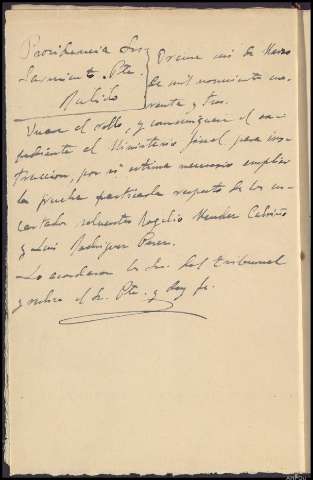 Providencia Sres
Sarmiento Pte.
Pulido
Orense a de Marzo
de mil novecientos cua-
renta y tres.
Unase al rollo, y comuniquese el ex-
pediente al Ministerio fiscal para ins-
truccion, por si estima necesario ampliar
la prueba practicada respecto de los en-
cartados solventes Rogelio Mendez Cabreiro
y Luis Rodriguez Perez.
Lo acordaron los Sres. del Tribunal
y rubrica el Sr. Pte. y doy fe.